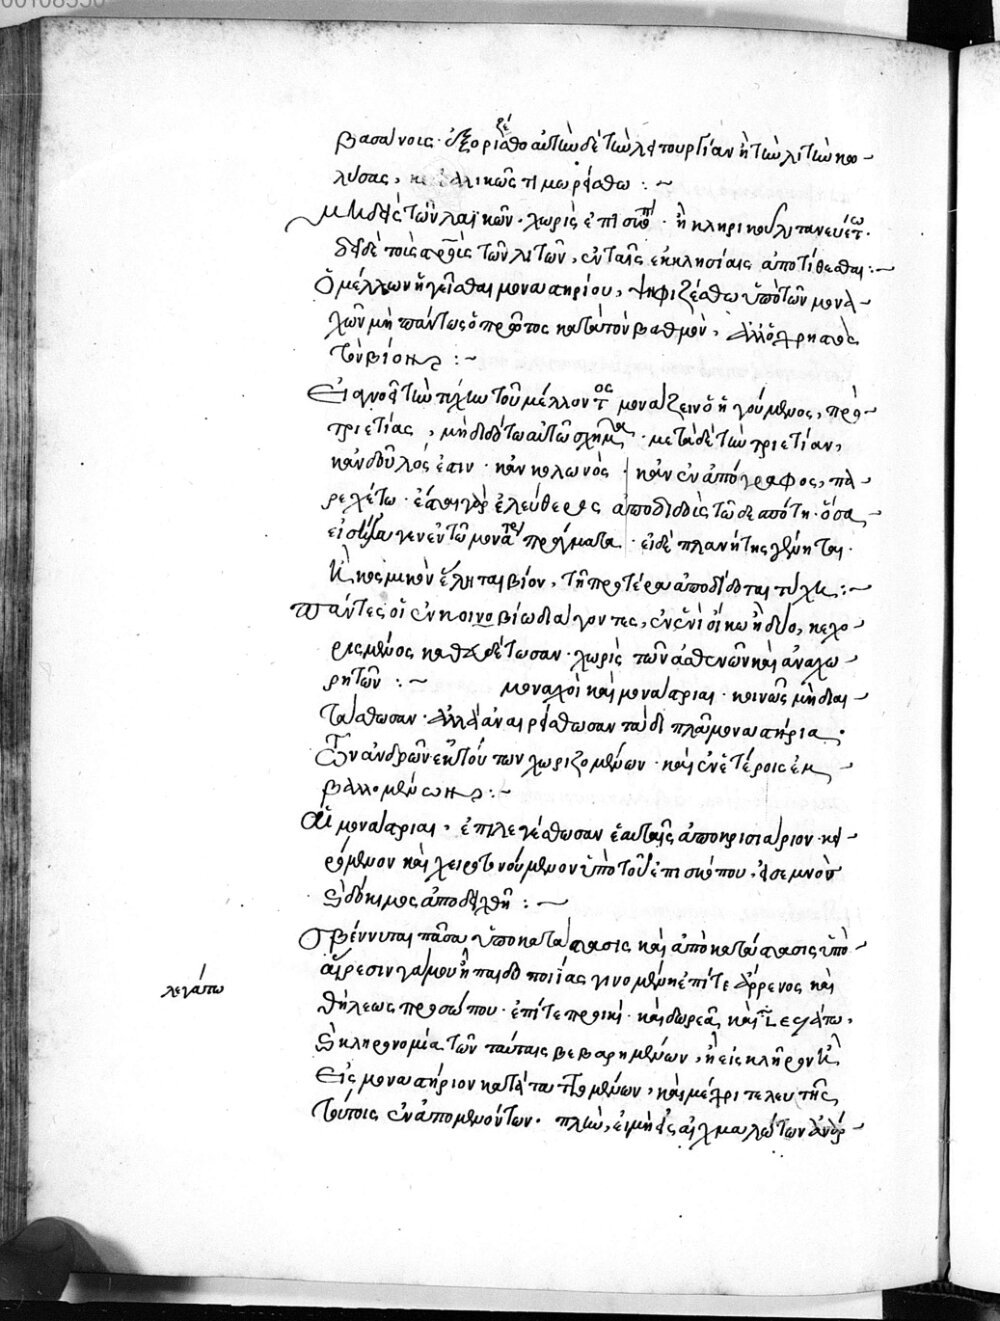 βασάνοις · ἐξοριζέσθω αὐτὸν δὲ τὸν λειτουργίαν ἢ τὴν λιτὴν κω-
λύσας, καὶ ἐδικῶς τιμωρείσθω : ~
Μηδεὶς τῶν λαϊκῶν · χωρὶς ἐπισκόπ · ἢ κληρικοῦ λιτανευέτω ·
δεῖ δὲ τοὺς στροὺς τῶν λιτῶν, ἐν ταῖς ἐκκλησίαις ἀποτίθεσθαι : ~
Ὁ μέλλων ἡγεῖσθαι μοναστηρίου, ψηφιζέσθω ὑπὸ τῶν μονα-
χῶν μὴ πάντως ὁ πρῶτος κατὰ τὸν βαθμόν, ἀλλ' ὁ χρηστὸς
τὸν βίον : ~
Εἰ ἀγνοεῖ τὴν τύχην τοῦ μέλλοντος μονάζειν ὁ ἡγούμενος, πρὸ
τριετίας, μὴ διδότω αὐτῷ σχῆμα · μετὰ δὲ τὴν τριετίαν,
κἂν δοῦλός ἐστιν · κἂν κολωνὸς κἂν ἐναπόγραφος, πα-
ρεχέτω · ἔσται γὰρ ἐλεύθερος ἀποδιδοὺς τῷ δεσπότῃ · ὅσα
εἰσήγαγεν ἐν τῷ μονα πράγματα · εἰ δὲ πλανήτης γένηται ·
ἢ κοσμικὸν ἕληται βίον, τῇ προτέρᾳ ἀποδίδοται τύχῃ : ~
Πάντες οἱ ἐν κοινοβίῳ διάγοντες, ἐν ἑνὶ οἴκῳ ἢ δύο, κεχω-
ρισμένος καθευδέτωσαν · χωρὶς τῶν ἀσθενῶν καὶ ἀναχω-
ρητῶν : ~ μοναχοὶ καὶ μονάστριαι · κοινῶς μὴ διαι-
τάσθωσαν · ἀλλὰ ἀναιρείσθωσαν τὰ διπλᾶ μοναστήρια ·
Τῶν ἀνδρῶν ἐκ τούτων χωριζομένων · καὶ ἐν ἑτέροις ἐμ-
βαλλομένων : ~
Αἱ μονάστριαι, ἐπιλεγέσθωσαν ἑαυταῖς ἀποκρισιάριον · κει-
ρόμενον καὶ χειροτονούμενον ὑπὸ τοῦ ἐπισκόπου, εἰ σεμνὸν
εὐδόκιμος ἀποδειχθῇ : ~
Σβέννυται πᾶσα ὑποκατάστασις καὶ ἀποκατάστασις ὑπὸ
αἵρεσιν γάμου ἢ παιδοποιίας γινομένη ἐπί τε ἄρρενος καὶ
λεγάτω
θήλεως προσώπου · ἐπί τε προικὶ · καὶ δωρεᾶς καὶ λεγάτῳ,
κληρονομία τῶν ταύταις βεβαρημένων, ἢ εἰς κλῆρον ἢ
Εἰς μοναστήριον καταταττομένων, καὶ μέχρι τελευτῆς
τούτοις ἐναπομενόντων · πλὴν, εἰ μὴ εἰς αἰχμαλώτων ἀνάρ-